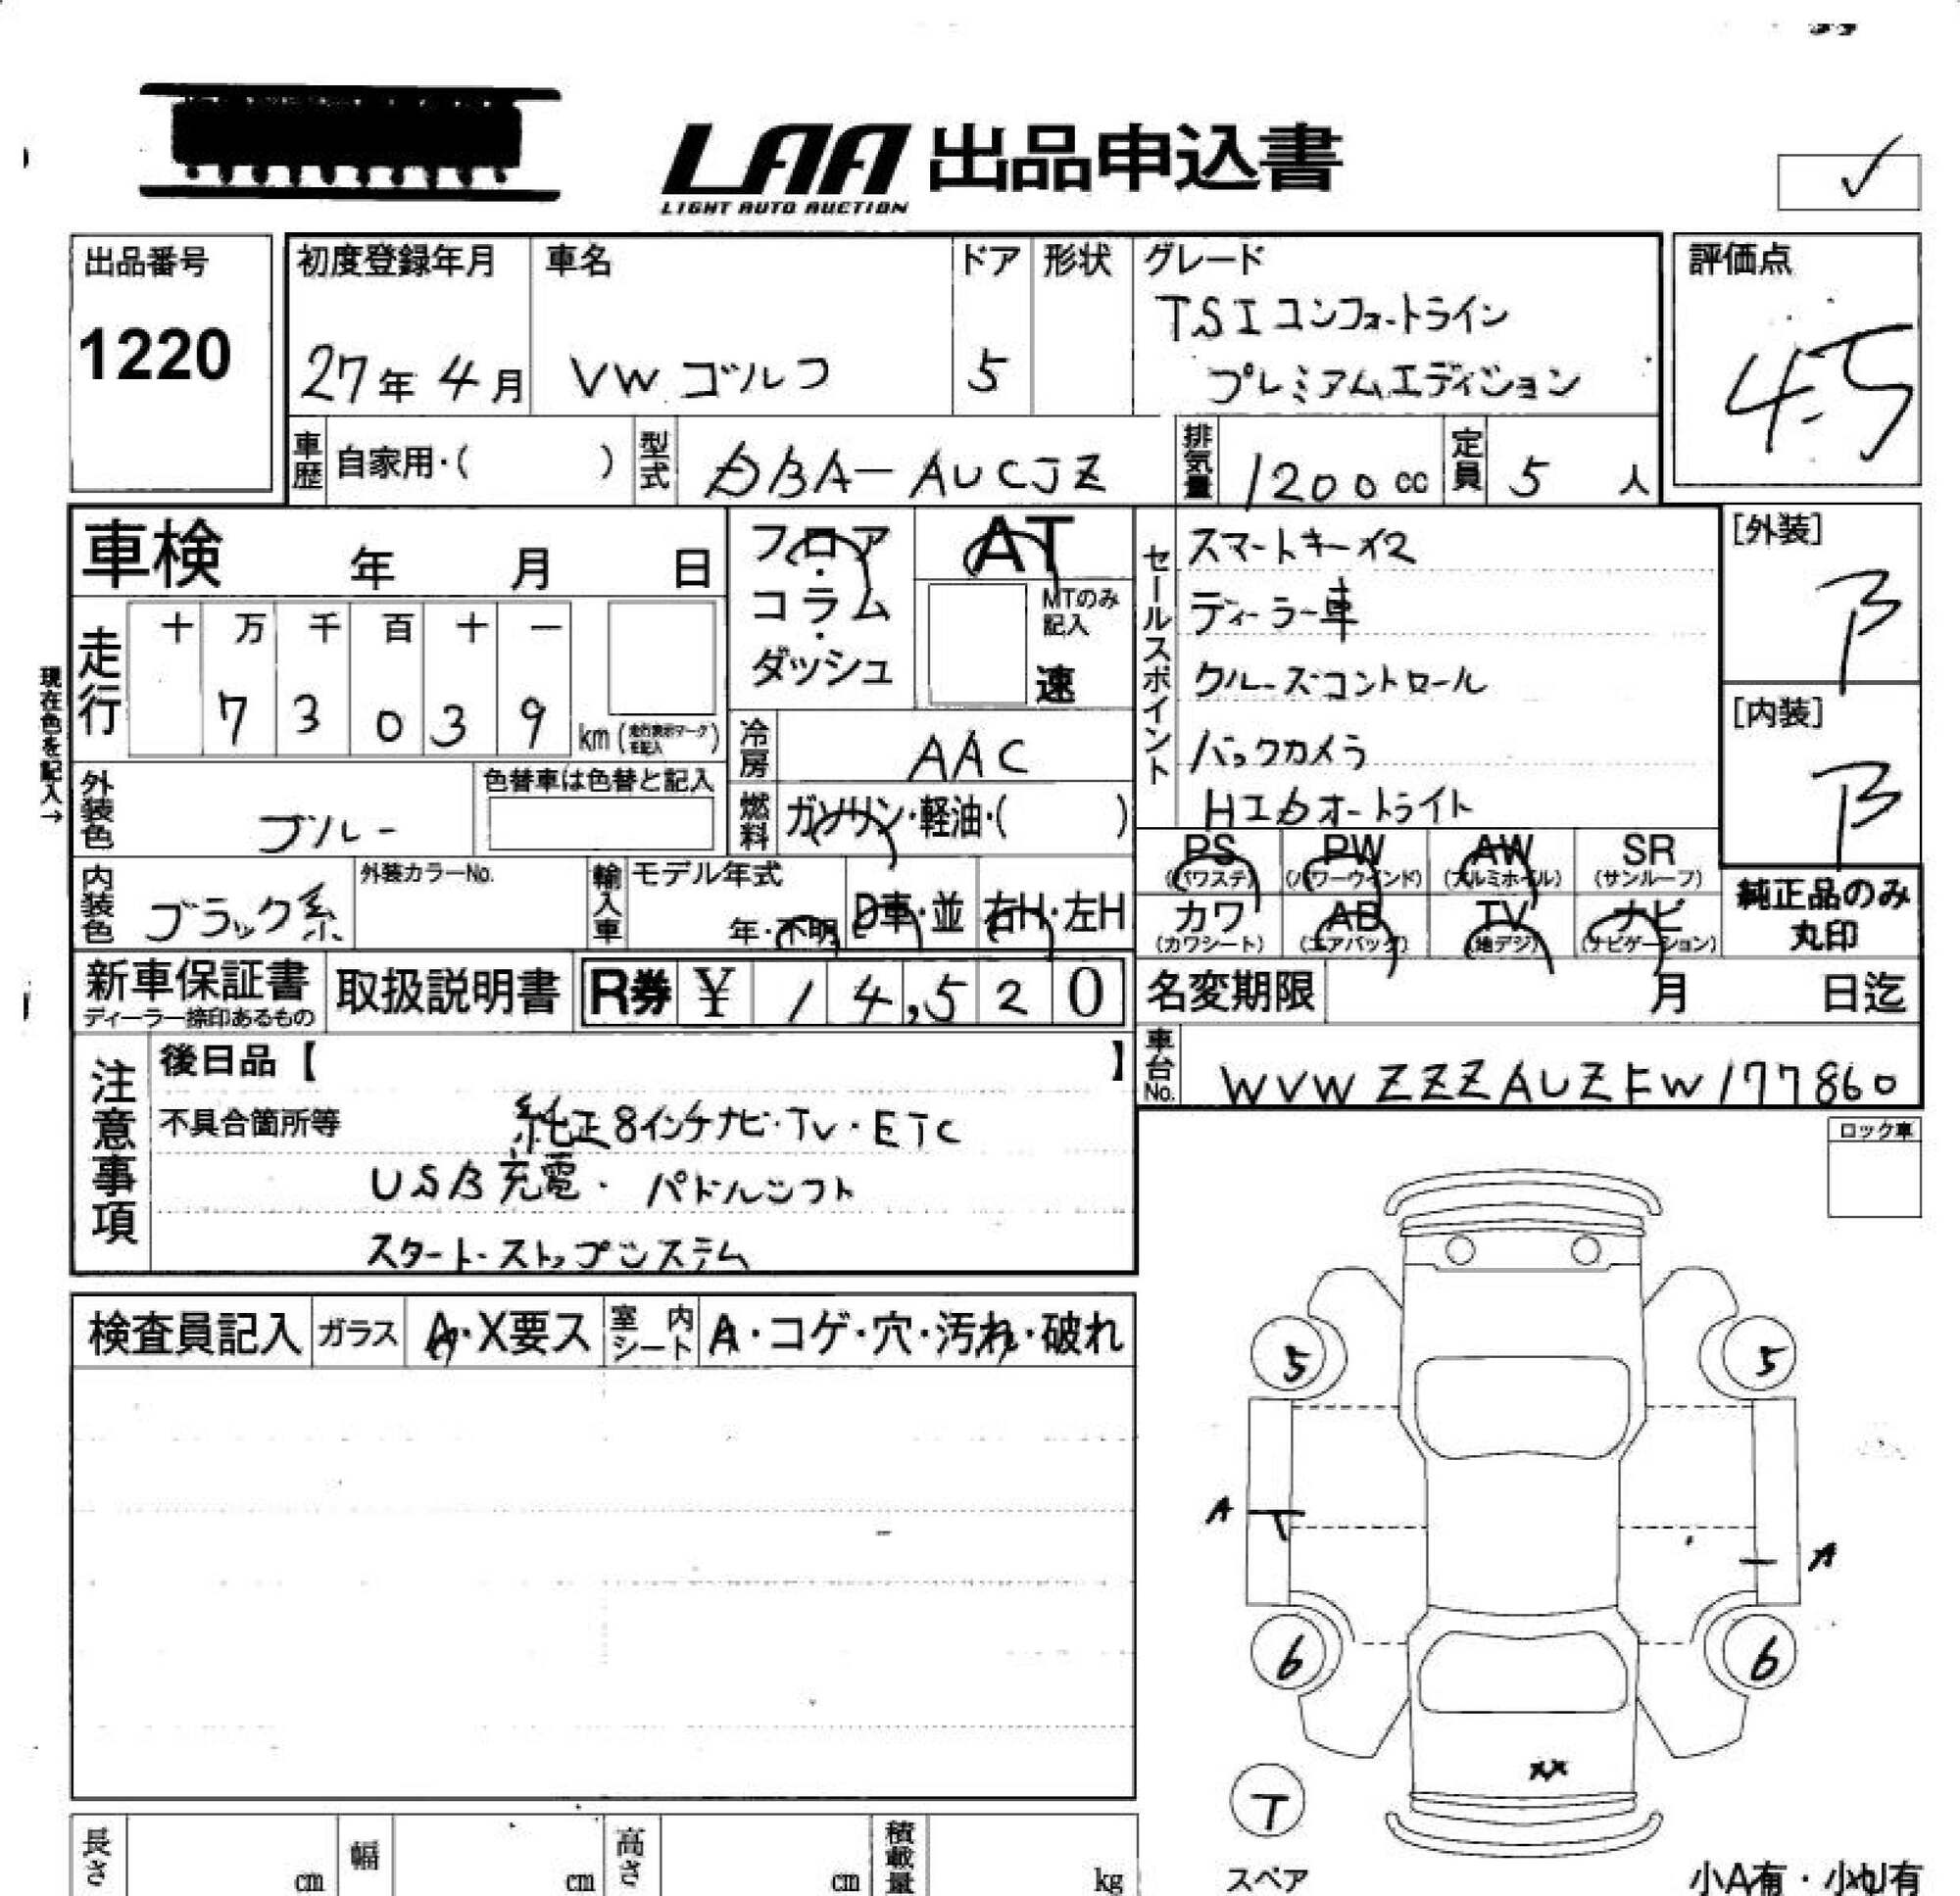 LAA 出品申込書
LIGHT AUTO AUCTION
出品番号
1220
初度登録年月
27年 4月
車名
VW ゴルフ
ドア
5
形状
グレード
TSI コンフォートライン
プレミアムエディション
評価点
4.5
車歴 自家用・( )
型式 DBA-AUCJZ
排気量 1200cc
定員 5人
車検 年 月 日
フロア・コラム・ダッシュ
AT
MTのみ記入
速
走行
十 万 千 百 十 一
7 3 0 3 9 km (走行表示マークを記入)
現在色を記入→
冷房 AAC
外装色 ブルー
色替車は色替と記入
燃料 ガソリン・軽油・( )
内装色 ブラック系
外装カラーNo.
輸入車
モデル年式
年・不明
D車・並
右H・左H
セールスポイント
スマートキー×2
ディーラー車
クルーズコントロール
バックカメラ
HIDオートライト
[外装]
B
[内装]
B
PS (パワステ)
PW (パワーウインド)
AW (アルミホイル)
SR (サンルーフ)
カワ (カワシート)
AB (エアバッグ)
TV (地デジ)
ナビ (ナビゲーション)
純正品のみ丸印
新車保証書
ディーラー捺印あるもの
取扱説明書
R券 ¥ 14,520
名変期限 月 日迄
車台No. WVWZZZAUZFW177860
注意事項
後日品【 】
不具合箇所等
純正8インチナビ・TV・ETC
USB充電・パドルシフト
スタート・ストップシステム
ロック車
検査員記入
ガラス A・X要ス
室内シート A・コゲ・穴・汚れ・破れ
5
5
A
A
6
6
XX
T
スペア
小A有・小U有
長さ cm
幅 cm
高さ cm
積載量 kg